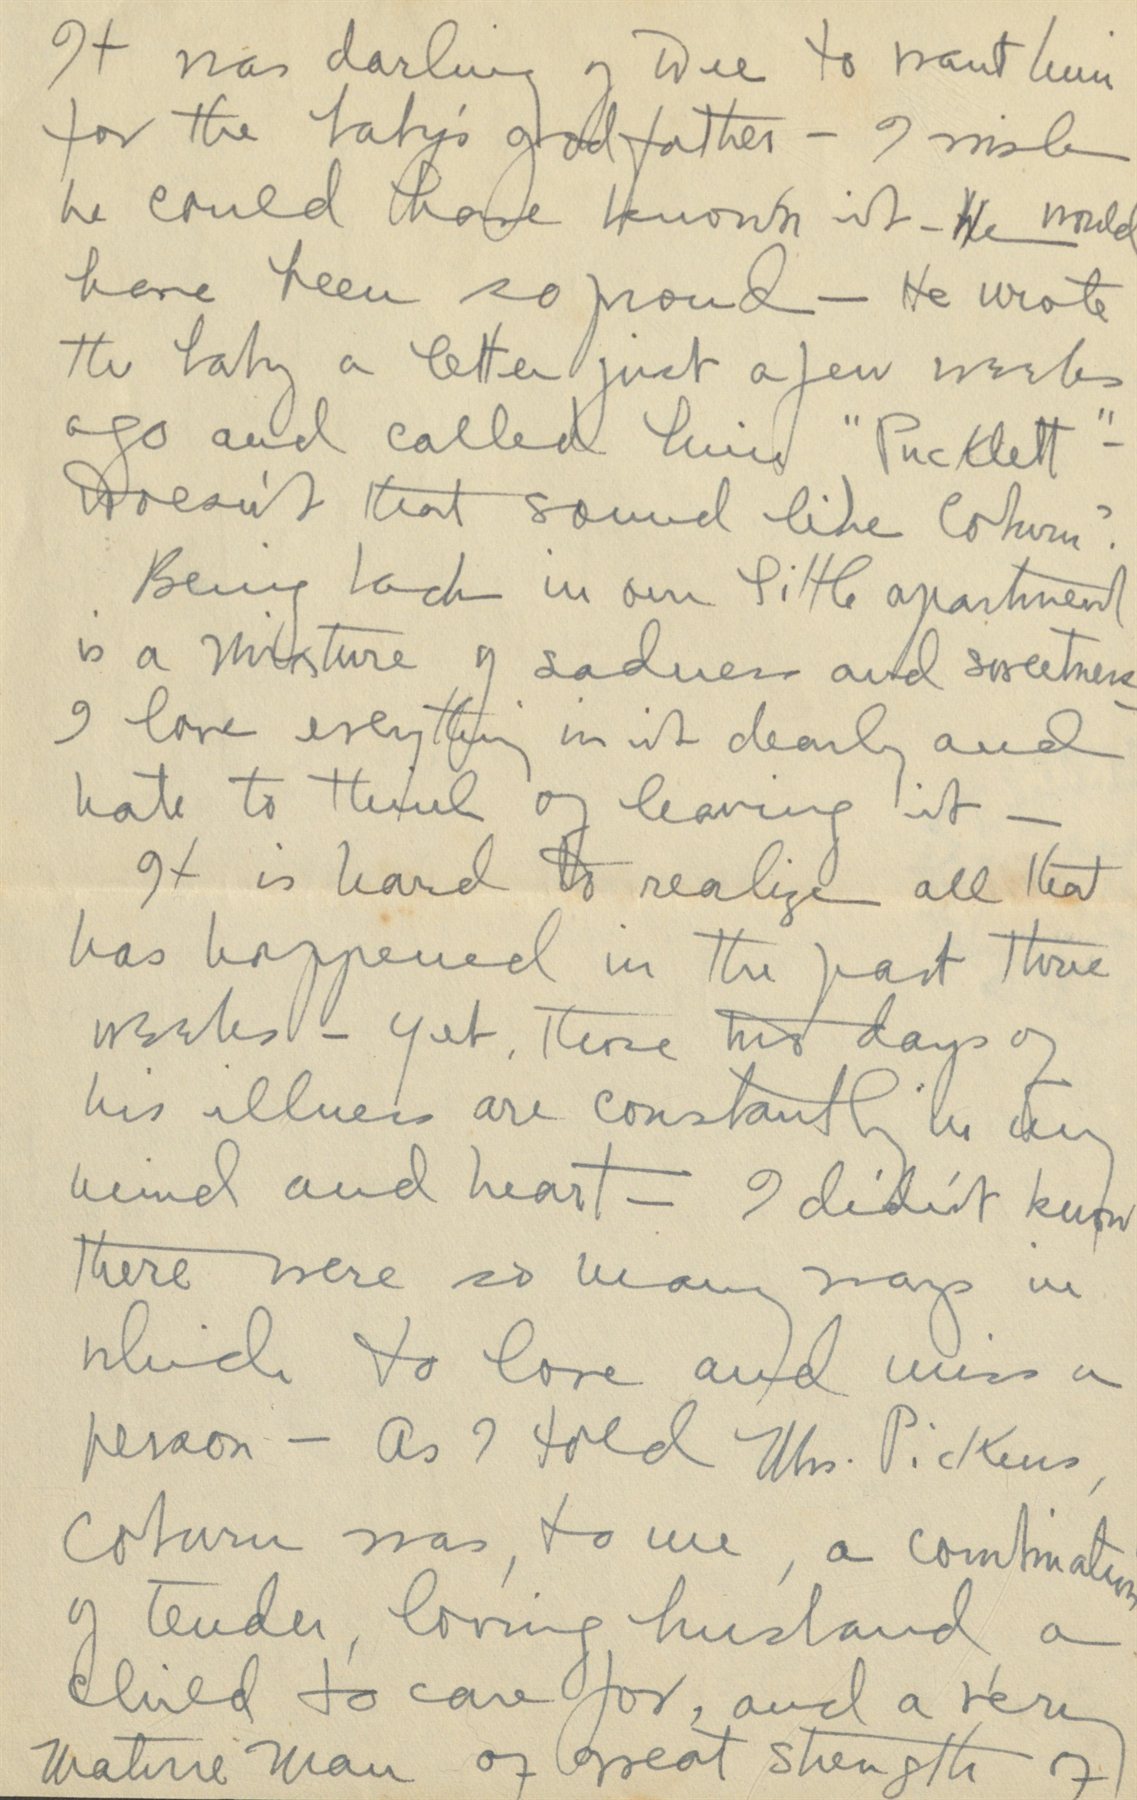 It was darling of Dee to want him
for the baby's godfather - I wish
he could have known it - He would
have been so proud - He wrote
the baby a letter just a few weeks
ago and called him "Pucklett" -
Doesn't that sound like Coburn?
Being back in our little apartment
is a mixture of sadness and sweetness -
I love everything in it dearly and
hate to think of leaving it -
It is hard to realize all that
has happened in the past three
weeks - yet, those two days of
his illness are constantly in my
mind and heart - I didn't know
there were so many ways in
which to love and miss a
person - As I told Mrs. Pickens,
Coburn was, to me, a combination
of tender, loving husband, a
child to care for, and a very
mature man of great strength of